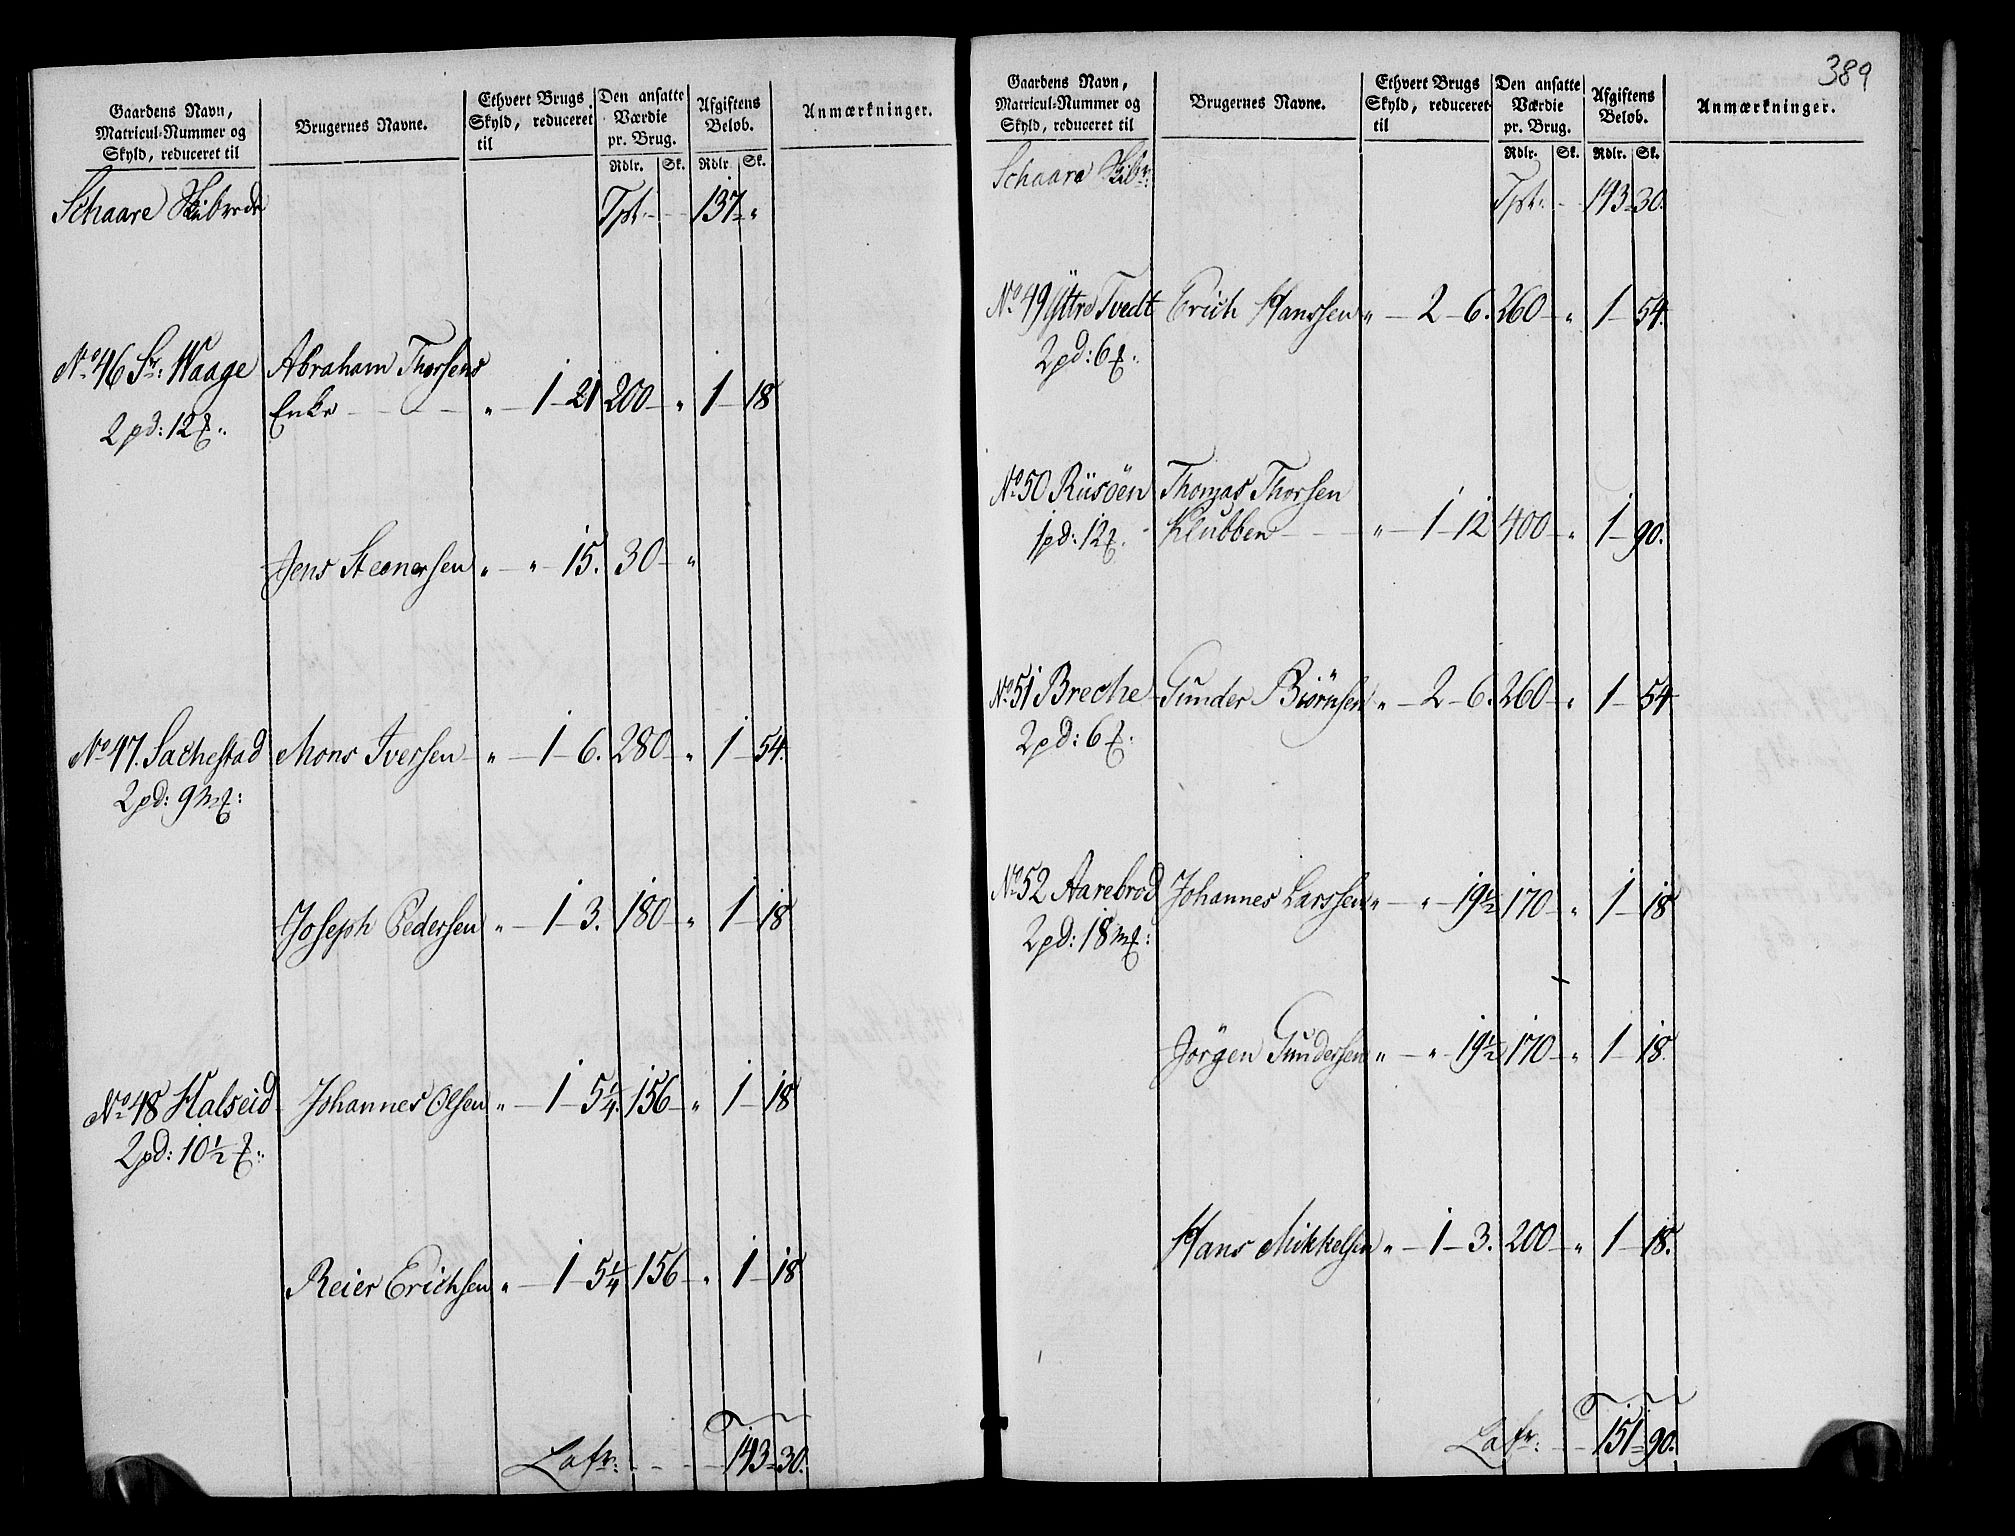 Gaardens Navn,
Matricul-Nummer og
Skyld, reduceret til
Brugernes Navne.
Ethvert Brugs
Skyld, reduceret
til
Den ansatte
Værdie
pr. Brug.
Rdlr. Sk.
Afgiftens
Beløb.
Rdlr. Sk.
Anmærkninger.
Schaare Skibrede Tpt. - - 137 - "
No 46 St: Waage Abraham Thorsens
2 pd: 12 Enke - - - " - 1 - 21 200 - " 1 - 18
Jens Steenersen " - " 15. 30 - "
No 47. Sachestad Mons Iversen - " - 1 - 6. 280 - " 1 - 54.
2 pd: 9 m
Joseph Pedersen " - 1 - 3. 180 - " 1 - 18
No 48 Halseid Johannes Olsen " - 1 - 5 1/4. 156 - " 1 - 18
2 pd: 10 1/2
Reier Erichsen " - 1 - 5 1/4 156 - " 1 - 18
Lafr: - - - 143 - 30.
389
Gaardens Navn,
Matricul-Nummer og
Skyld, reduceret til
Brugernes Navne.
Ethvert Brugs
Skyld, reduceret
til
Den ansatte
Værdie
pr. Brug.
Rdlr. Sk.
Afgiftens
Beløb.
Rdlr. Sk.
Anmærkninger.
Schaare Skibr: Tpt. - - 143 - 30.
No 49 Yttre Tvedt Erich Hanssen " - 2 - 6. 260 - " 1 - 54.
2 pd: 6
No 50 Riisöen Thomas Thorsen
1 pd: 12 Klubben - - - " - 1 - 12 400 - " 1 - 90.
No 51 Breche Gunder Biörnsen " - 2 - 6. 260 - " 1 - 54
2 pd: 6
No 52 Aarebrod Johannes Larssen " - " - 19 1/2 170 - " 1 - 18
2 pd: 18 m
Jörgen Gundersen " - " - 19 1/2 170 - " 1 - 18.
Hans Mikkelsen " - 1 - 3. 200 - " 1 - 18.
Lafr: - - 151 - 90.